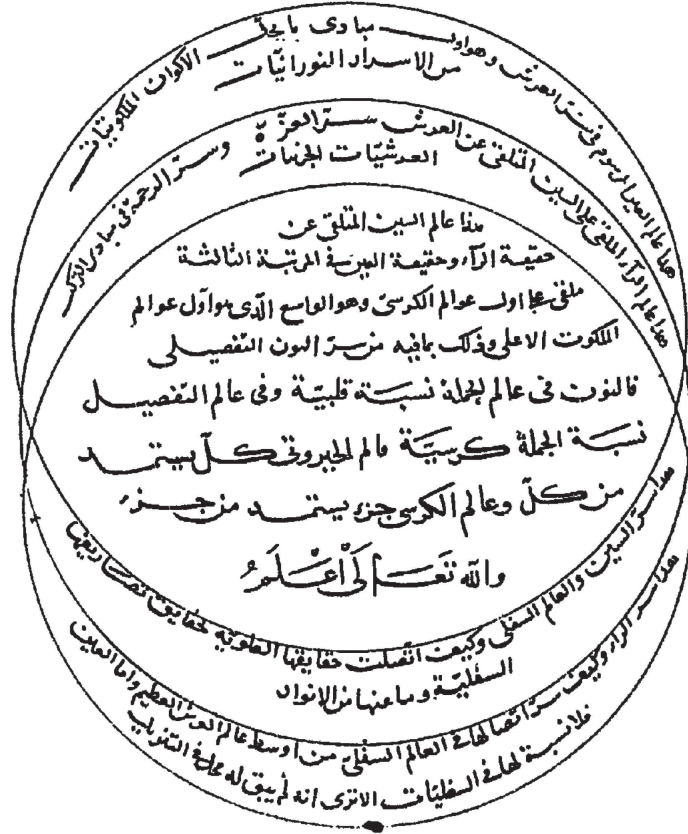 هذا عالم العين المرسوم فى سر العرش وهو اول مبادى الاكوان الملكوتيات
من الاسرار النورانيات
هذا عالم الرآء الملقى على السين المتلقى عن العرش سر العز وسر الرحمة فى مبادى
العرشيات
هذا عالم السين المتلقى عن
حقيقة الرآء وحقيقة العين فى المرتبة الثالثة
ملقى على اول عوالم الكرسى وهو الواسع الذى هو اول عوالم
الملكوت الاعلى وذلك بما فيه من سر النون التفصيلى
فالنون فى عالم الجملة نسبة قلبية وفى عالم التفصيل
نسبة الجملة كرسية فالم الجبروتى كل يستمد
من كل وعالم الكرسى جزء يستمد من جزء
والله تعالى أعلم
هذا سر السين والعالم السفلى وكيف اتصلت حقايقها العلوية لحقايق
السفلية وما عنها من الانوار
هذا سر الراء وكيف سر اتصالها فى العالم السفلى من اوسط عالم العرش العظيم واما العين
فلا نسبة لها فى السفليات الا ترى انه لم يبق له محل فى التنزيل